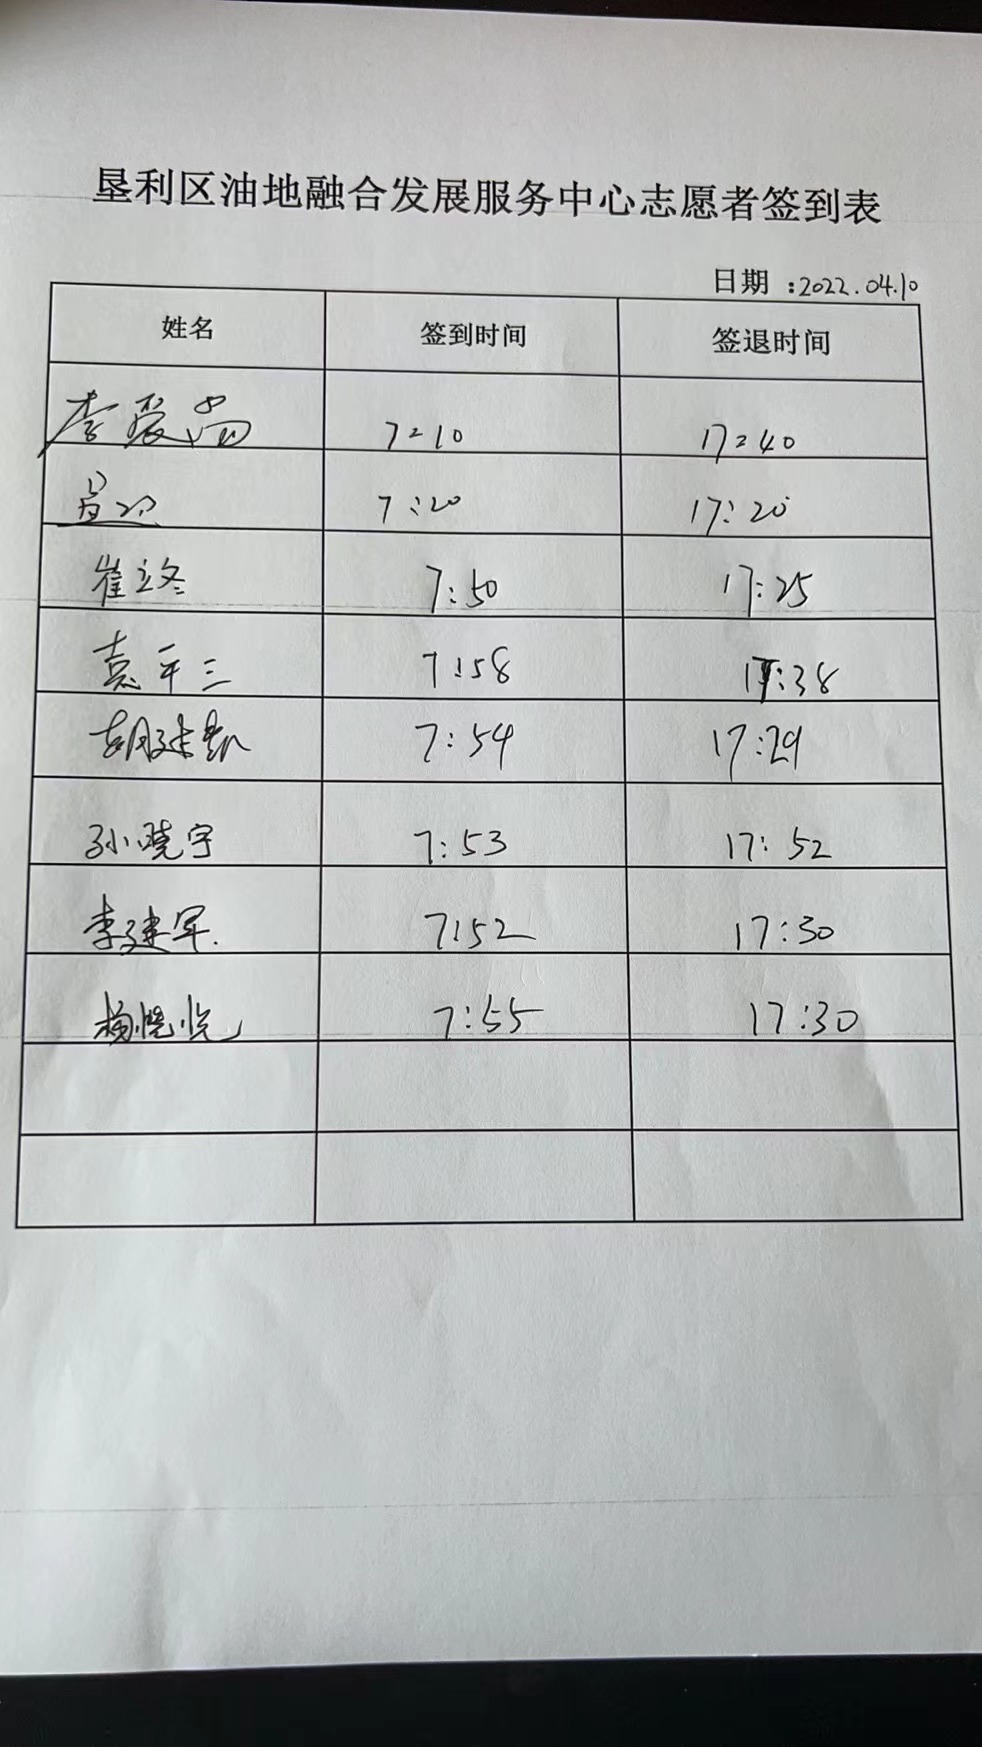 垦利区油地融合发展服务中心志愿者签到表
日期：2022.04.10
姓名 签到时间 签退时间
7:10 17:40
7:20 17:20
崔立冬 7:50 17:25
袁平三 7:58 17:38
胡建凯 7:54 17:29
孙晓宇 7:53 17:52
李建军. 7:52 17:30
杨晓悦 7:55 17:30